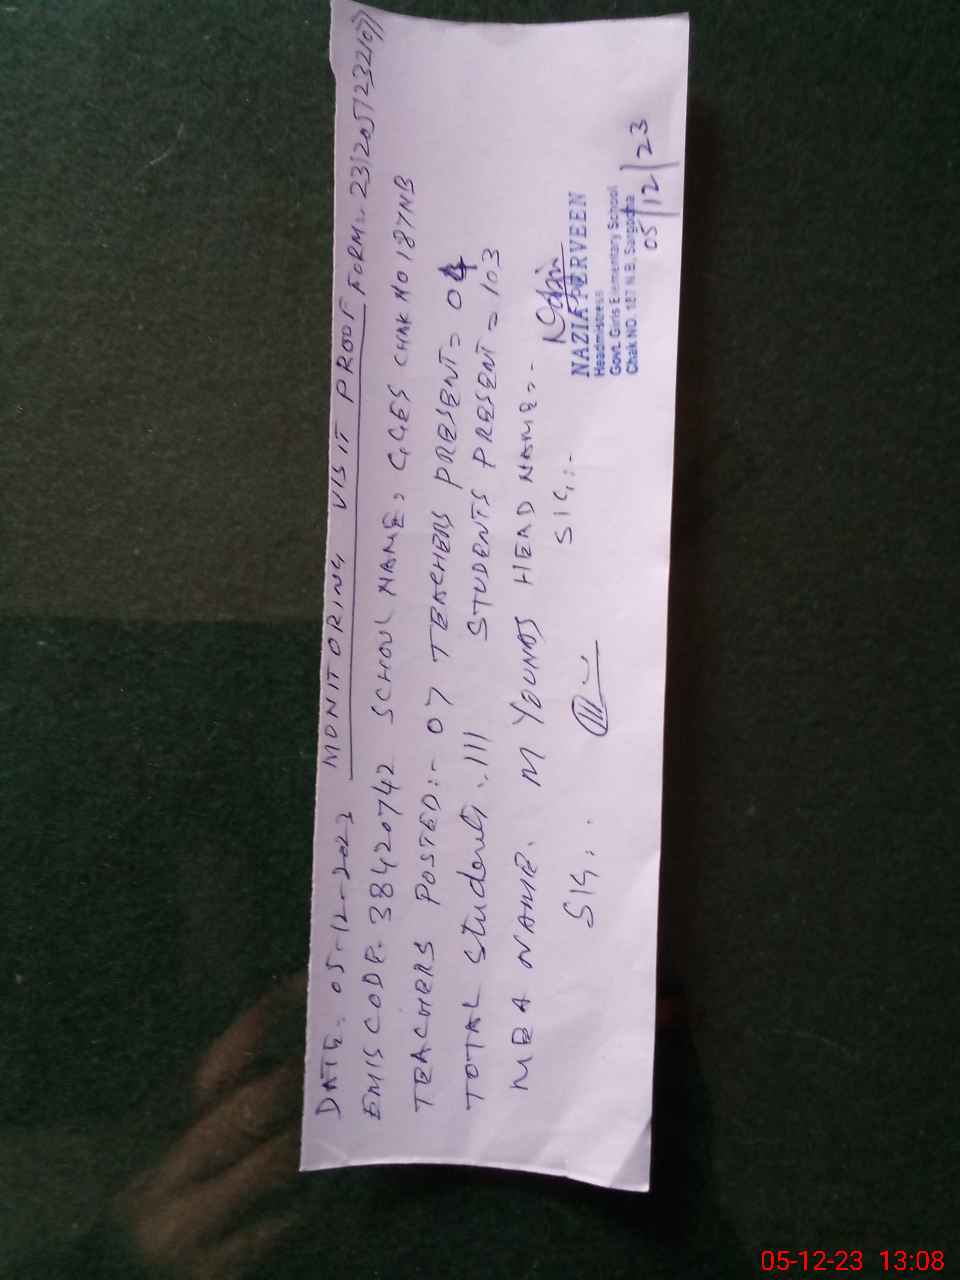 DATE:- 05-12-2023 MONITORING VISIT PROOF FORM:- 23120517232107
EMIS CODE- 38420742 SCHOOL NAME:- GGES CHAK NO 187NB
TEACHERS POSTED:- 07 TEACHERS PRESENT= 04
TOTAL Students:. 111 STUDENTS PRESENT = 103
MEA NAME. M YOUNAS HEAD NAME:-
SIG: SIG:-
NAZIA PERVEEN
Headmistress
Govt. Girls Elementary School
Chak NO. 187 N.B, Sargodha
05/12/23
05-12-23 13:08